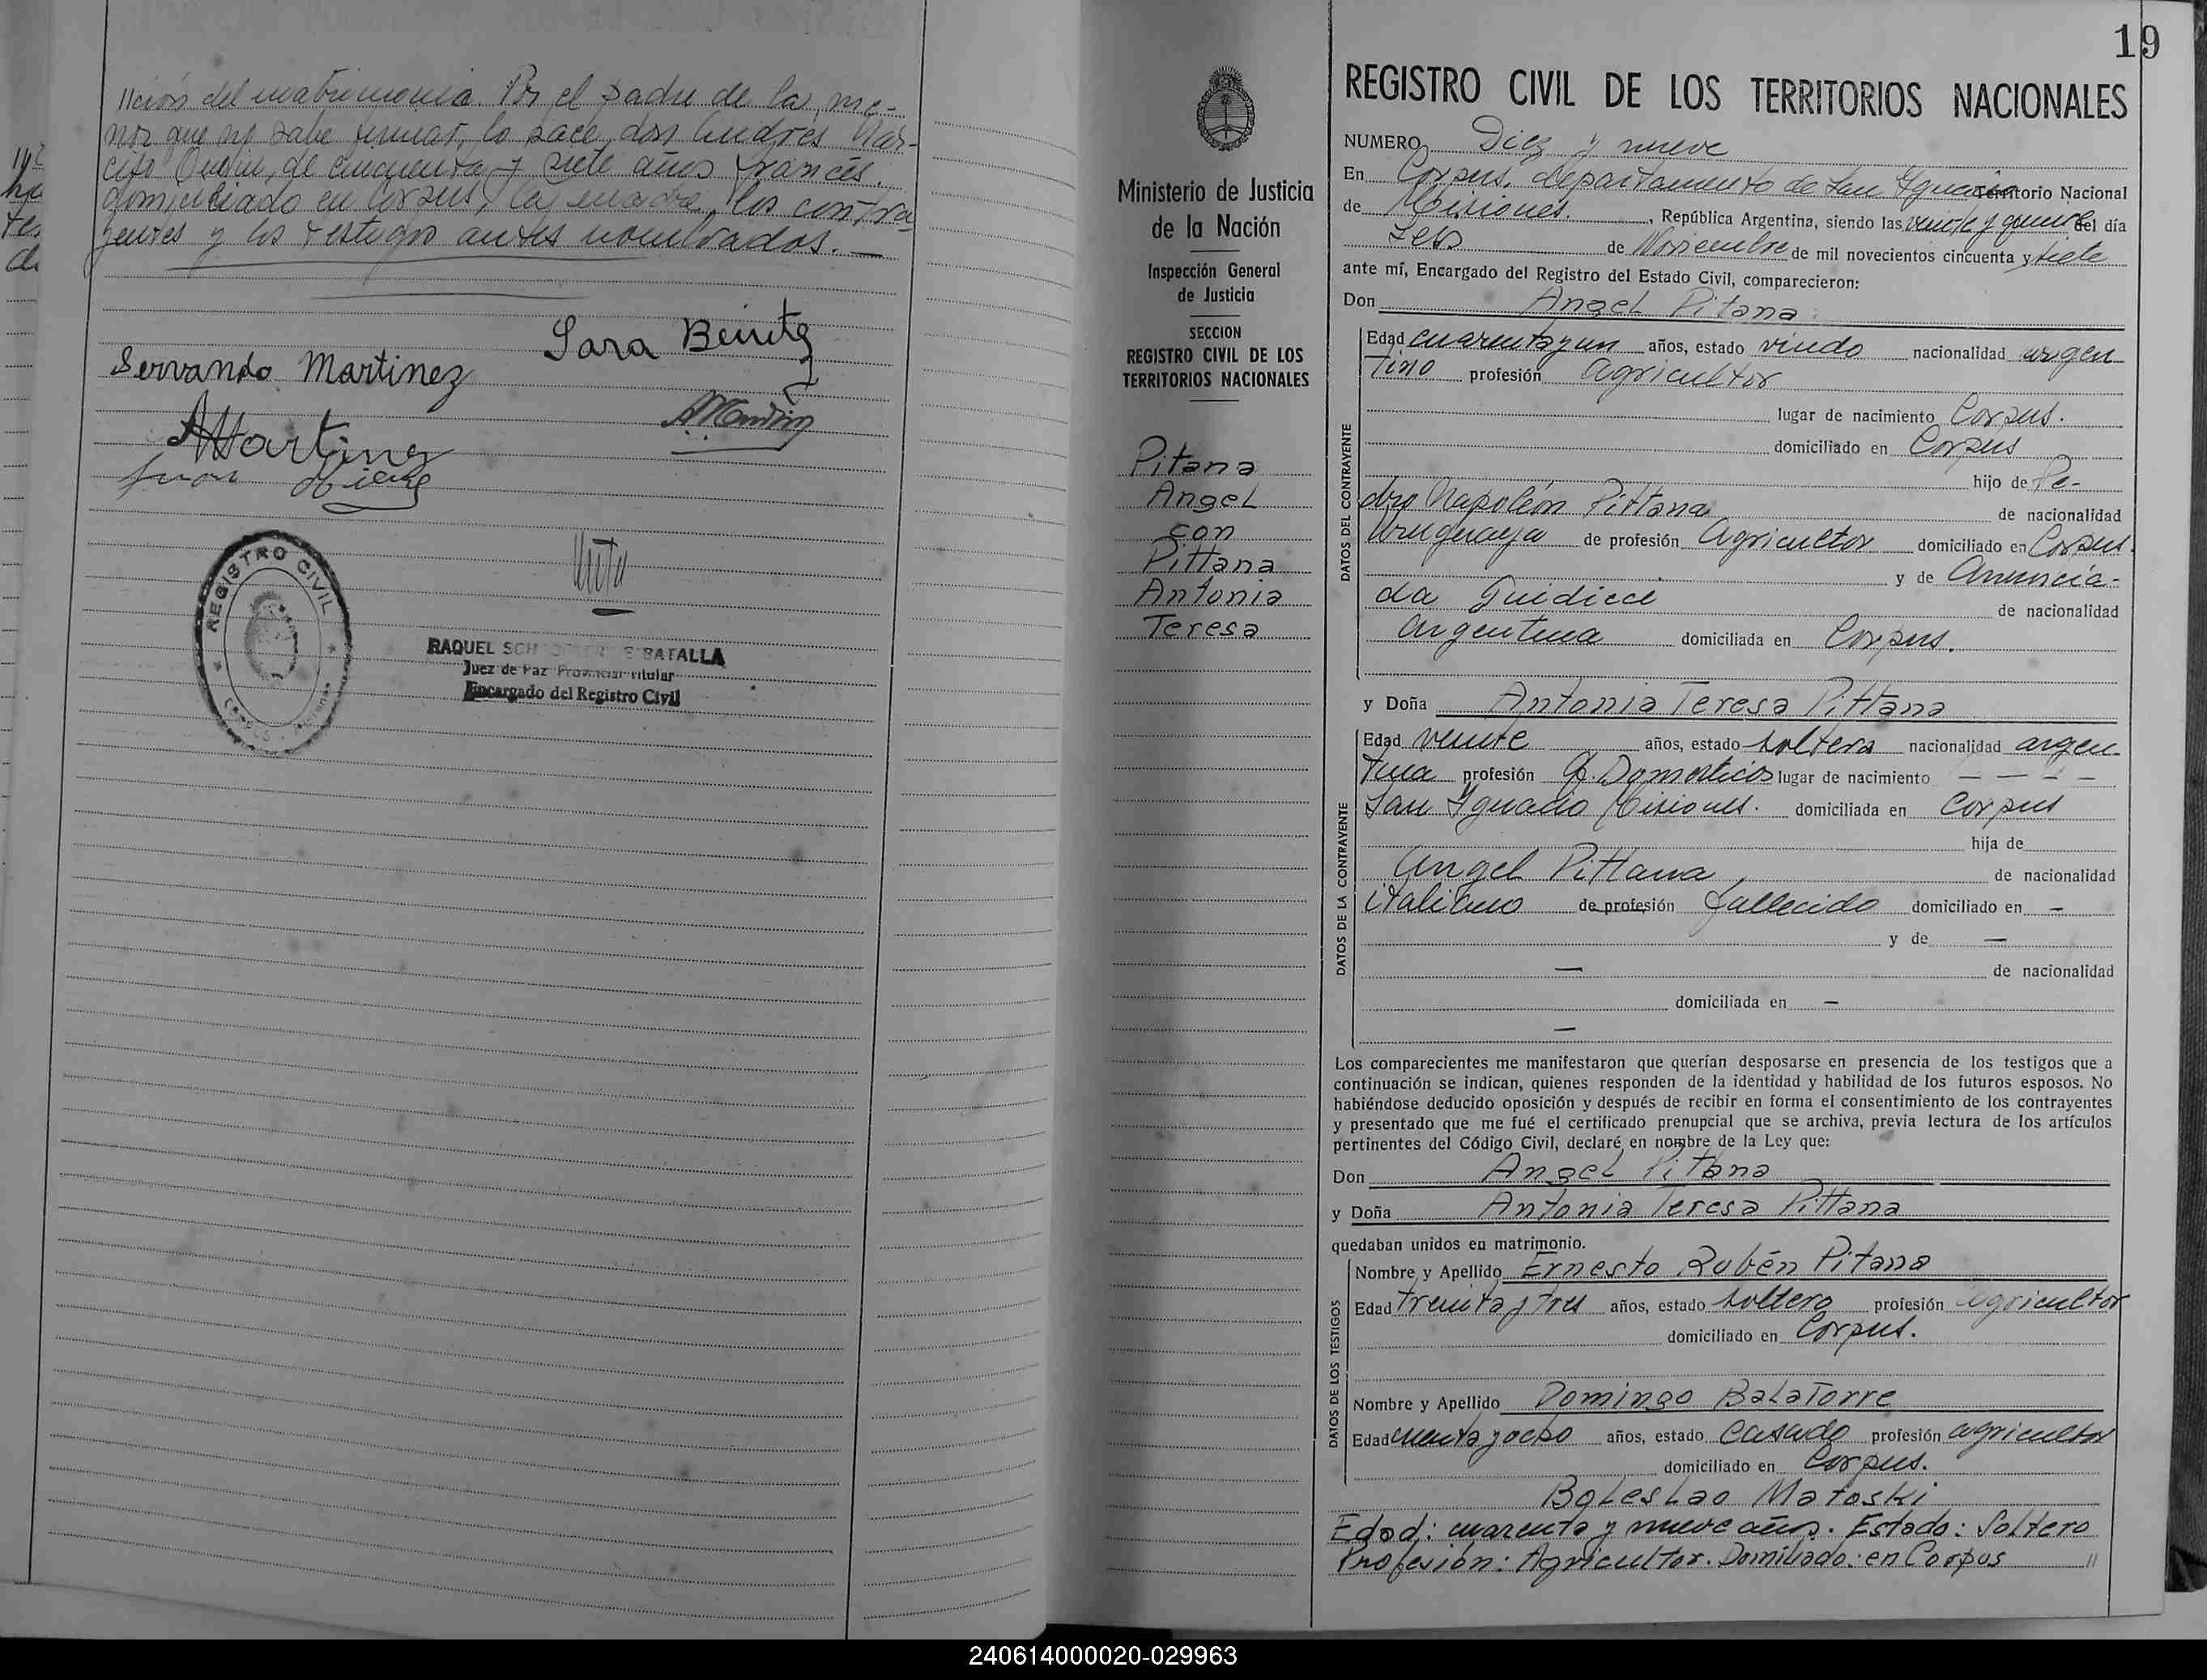 //ción del matrimonio. Por el padre de la me-
nor que no sabe firmar, lo hace don Andrés Nar-
ciso, de cincuenta y siete años francés,
domiciliado en Corpus, la madre, los contra-
yentes y los testigos antes nombrados.—
Sara Benitez
Servando Martinez
AMartinez
Juan
REGISTRO CIVIL
RAQUEL BATALLA
Juez de Paz Provincial Titular
Encargado del Registro Civil
19
REGISTRO CIVIL DE LOS TERRITORIOS NACIONALES
Ministerio de Justicia
de la Nación
Inspección General
de Justicia
SECCION
REGISTRO CIVIL DE LOS
TERRITORIOS NACIONALES
Pitana
Angel
con
Pittana
Antonia
Teresa
NUMERO Diez y nueve
En Corpus, departamento de San Ignacio Territorio Nacional
de Misiones. , República Argentina, siendo las veinte y quince del día
seis de Noviembre de mil novecientos cincuenta y siete
ante mí, Encargado del Registro del Estado Civil, comparecieron:
Don Angel Pitana
DATOS DEL CONTRAYENTE
Edad cuarenta y un años, estado viudo nacionalidad argen
tino profesión Agricultor
lugar de nacimiento Corpus.
domiciliado en Corpus
hijo de Pe-
dro Napoleón Pittana de nacionalidad
Uruguaya de profesión Agricultor domiciliado en Corpus.
y de Anuncia-
da Guidice de nacionalidad
Argentina domiciliada en Corpus.
y Doña Antonia Teresa Pittana
DATOS DE LA CONTRAYENTE
Edad veinte años, estado soltera nacionalidad argen
tina profesión Q. Domesticos lugar de nacimiento — — — —
San Ignacio Misiones. domiciliada en Corpus
hija de
Angel Pittana de nacionalidad
italiano de profesión fallecido domiciliado en —
y de —
— de nacionalidad
domiciliada en —
—
Los comparecientes me manifestaron que querían desposarse en presencia de los testigos que a
continuación se indican, quienes responden de la identidad y habilidad de los futuros esposos. No
habiéndose deducido oposición y después de recibir en forma el consentimiento de los contrayentes
y presentado que me fué el certificado prenupcial que se archiva, previa lectura de los artículos
pertinentes del Código Civil, declaré en nombre de la Ley que:
Don Angel Pitana
y Doña Antonia Teresa Pittana
quedaban unidos en matrimonio.
DATOS DE LOS TESTIGOS
Nombre y Apellido Ernesto Rubén Pitana
Edad treinta y tres años, estado soltero profesión agricultor
domiciliado en Corpus.
Nombre y Apellido Domingo BalaTorre
Edad y ocho años, estado Casado profesión agricultor
domiciliado en Corpus.
Boleslao Matoski
Edad: cuarenta y nueve años. Estado: Soltero
Profesión: Agricultor. Domiliado: en Corpus //
240614000020-029963